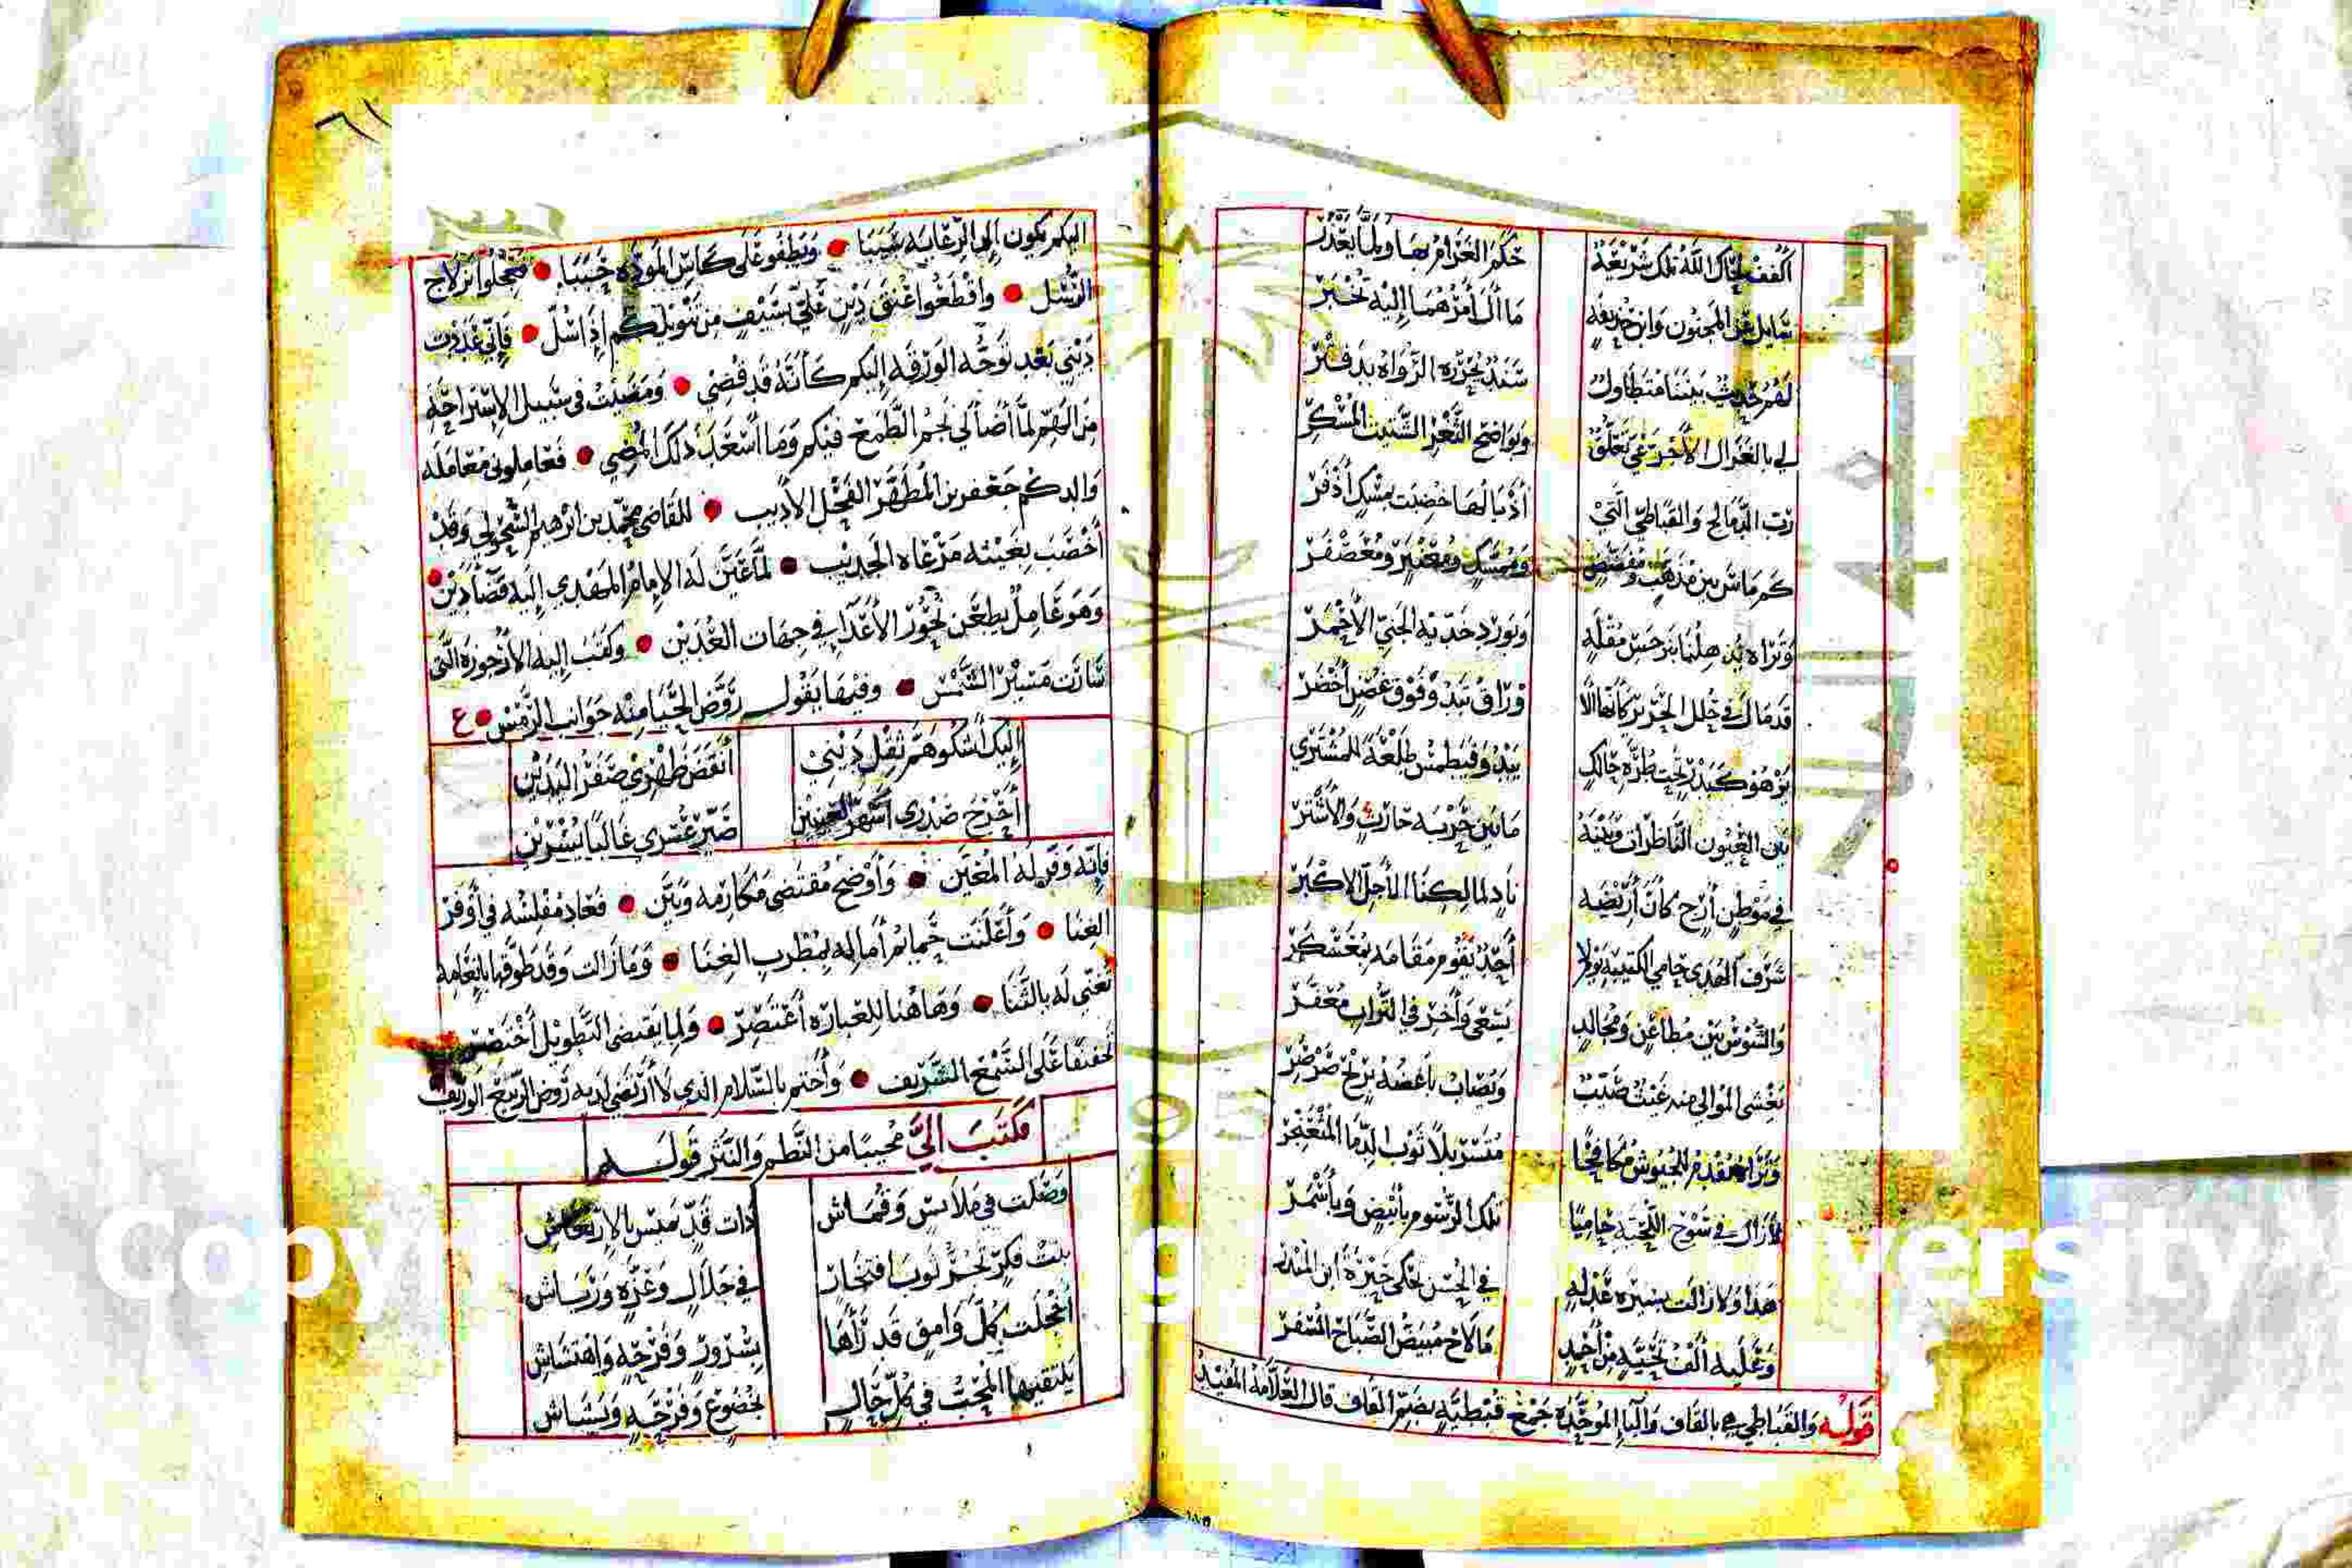 أكفف لحاك الله تلك شريعة حكم الغرام بها ولما يغدر
سايل عن المجنون وابن خريفه ما آل أمرهما إليه تخبر
لهم حديث بيننا متطاول سند يحرره الرواه بدفتر
لي بالغزال الأحر عي تعلق وبواضح الثغر الشتيت المسكر
رب الدمالج والقباطي التي أذيالها خضبت بمسك أذفر
كم ماس بين مذهب ومفضض وممسك ومعنبر ومعصفر
وتراه يدهلنا بنرجس مقله وبورد خديه الجني الأحمر
قد مال في حلل الحرير كأنها الا وراق تبدو فوق غصن أخضر
يزهو كبدر تحت طرة حالك يبدو فيطمس طلعة للمشتري
بين العيون الناظرات وبينه ما بين حربه حارث والأشتر
في موطن أرج كأن أريضه ناد لمالكنا الأجل الأكبر
شرف الهدى حامي الكتيبه بولا أحد يقوم مقامه بمعسكر
والشوش بين مطاعن ومجالد يسعى وآخر في التراب معفر
يغشى الموالي منه غيث صيب وتصاب باغضه بريح صرصر
وتراه مقدم للجيوش مكافحا متسربلا ثوب الدما المثعنجر
لا زال في سوح التحيه حاميا تلك الرسوم بأبيض وبأسمر
هذا ولا زالت بسيره عدله في الحسن تحكي حيرة ابن المنذر
وعليه ألف تحيه من أحمد ما لاح مبيض الصباح المسفر
قوله والقباطي هي بالقاف والباء الموحده جمع قبطيه بضم القاف قال العلامة المفيد
اليكم يكون إلى الرعايه سببا وتطفو على كاس الموده حببا فعجلوا بزلاج
الرسل واقطعوا عنق دين علي بسيف من تنويلكم إذا سل فإني عددت
ديني بعد توجه الورقه إليكم كأنه قد قضي ومضيت في سبيل الإستراحه
من الهم لما أضا لي نجم الطمع فيكم وما أسعد ذلك المضي فعاملوني معامله
والدكم جعفر بن المطهر الفحل الأديب للقاضي محمد بن ابراهيم السحولي وقد
أخصب بغيثه مرعاه الجديب لما عين له الإمام المهدي إليه قضا دين
وهو عامل يطعن نحور الأعداء في جهات العدين وكتب إليه الأرجوزة التي
سارت مسير الشمس وفيها يقول روض الحيا منه جوانب الرمس ع
إليك أشكو هم ثقل ديني أنقض ظهري صفر اليدين
أحرج صدري أسهر العينين صير عسري غالبا يسرين
فإنه وفر له المعين وأوضح مقتضى مكارمه وبين فعاد مفلسه في أوفر
الغنا وأعلنت حمائم أماله بمطرب الغنا وما زالت وقد طوقها بإنعامه
تغني له بالثنا وها هنا للعباره أعتصر ولما يقتضي التطويل أختصر
تخفيفا على السمع الشريف وأختم بالسلام الذي لا أرتضي لديه روض الربيع الوريف
فكتب الي مجيبا من النظم والنثر قوله
وصلت في ملابس وقماش ذات قد ميس بالارتعاش
بنت فكر تجر ثوب افتخار في جلال وعزه ورياش
أنحلت كل وامق قد رآها بسرور وفرحه واهتشاش
يلتقيها المحب في كل حال بخضوع وفرحه وبشاش